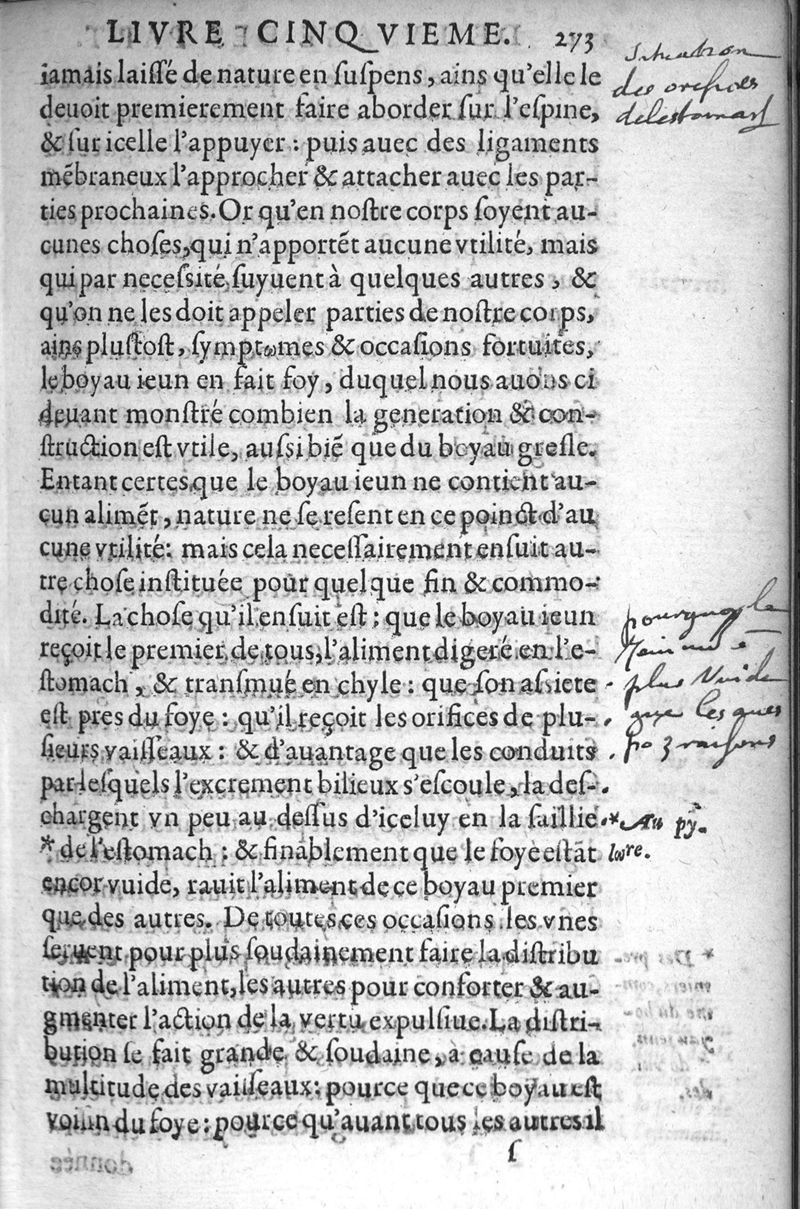 LIVRE CINQVIEME. 273
iamais laissé de nature en suspens, ains qu'elle le
deuoit premierement faire aborder sur l'espine,
& sur icelle l'appuyer : puis auec des ligaments
mẽbraneux l'approcher & attacher auec les par-
ties prochaines. Or qu'en nostre corps soyent au-
cunes choses, qui n'apportẽt aucune vtilité, mais
qui par necessité suyuent à quelques autres, &
qu'on ne les doit appeler parties de nostre corps,
ains plustost, symptomes & occasions fortuites,
le boyau ieun en fait foy, duquel nous auons ci
deuant monstré combien la generation & con-
struction est vtile, aussi biẽ que du boyau gresle.
Entant certes, que le boyau ieun ne contient au-
cun alimẽt, nature ne se resent en ce poinct d'au
cune vtilité: mais cela necessairement ensuit au-
tre chose instituée pour quelque fin & commo-
dité. La chose qu'il ensuit est : que le boyau ieun
reçoit le premier de tous, l'aliment digeré en l'e-
stomach, & transmué en chyle : que son assiete
est pres du foye : qu'il reçoit les orifices de plu-
sieurs vaisseaux : & d'auantage que les conduits
par lesquels l'excrement bilieux s'escoule, la des-
chargent vn peu au dessus d'iceluy en la saillie
* de l'estomach : & finablement que le foye estãt
encor vuide, rauit l'aliment de ce boyau premier
que des autres. De toutes ces occasions les vnes
seruent pour plus soudainement faire la distribu
tion de l'aliment, les autres pour conforter & au-
gmenter l'action de la vertu expulsiue. La distri-
bution se fait grande & soudaine, à cause de la
multitude des vaisseaux: pource que ce boyau est
voisin du foye : pource qu'auant tous les autres il
s
Situation
des orifices
de lestomach
pourquoy le
Jeiunum
plus vuide
que les
raisons
* Au py-
lore.